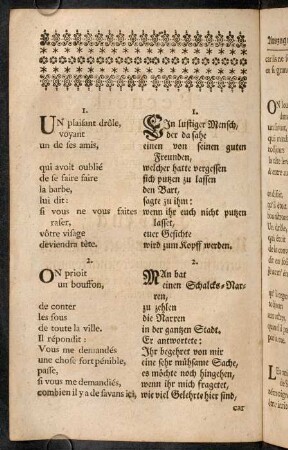 1.
UN plaisant drôle,
voyant
un de ses amis,
qui avoit oublié
de se faire faire
la barbe,
lui dit:
si vous ne vous faites
raser,
vôtre visage
deviendra tête.
2.
ON prioit
un bouffon,
de conter
les fous
de toute la ville.
Il répondit:
Vous me demandés
une chose fort pénible,
passe,
si vous me demandiés,
combien il y a de savans ici,
1.
EIn lustiger Mensch,
der da sahe
einen von seinen guten
Freunden,
welcher hatte vergessen
sich putzen zu lassen
den Bart,
sagte zu ihm:
wenn ihr euch nicht putzen
lasset,
euer Gesichte
wird zum Kopff werden.
2.
MAn bat
einen Schalcks-Nar-
ren,
zu zehlen
die Narren
in der gantzen Stadt.
Er antwortete:
Ihr begehret von mir
eine sehr mühsame Sache,
es möchte noch hingehen,
wenn ihr mich fragetet,
wie viel Gelehrte hier sind,
car